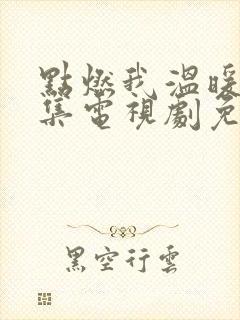 點燃我溫暖
集電視劇免
黑空行雲